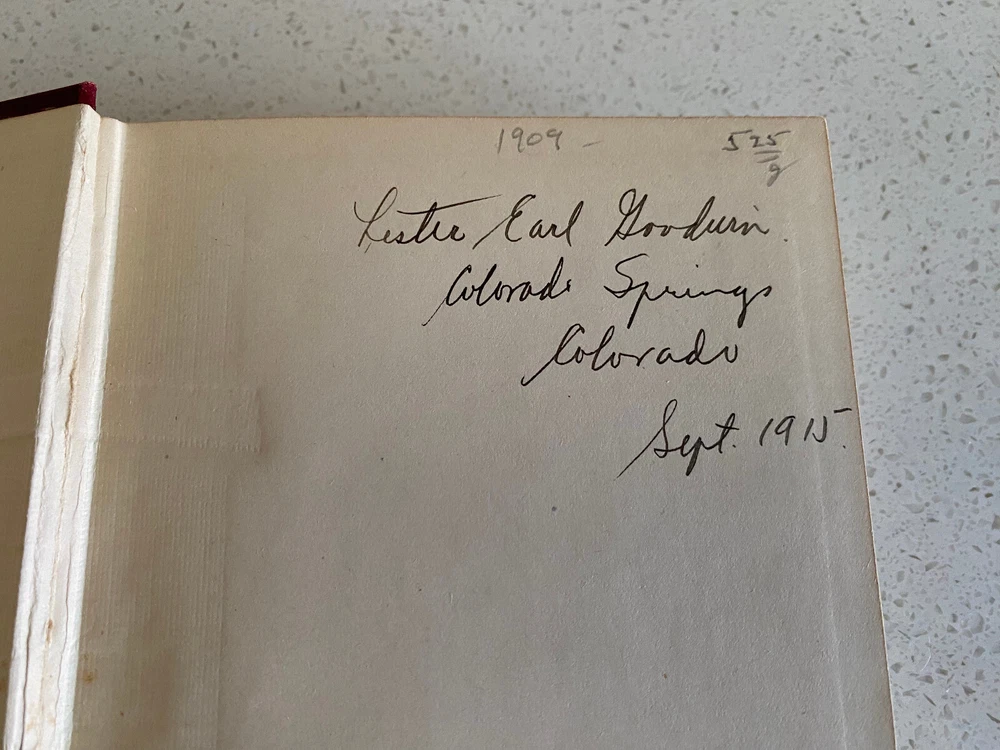 1909 - 525
Lester Earl Goodwin.
Colorado Springs
Colorado
Sept. 1915.